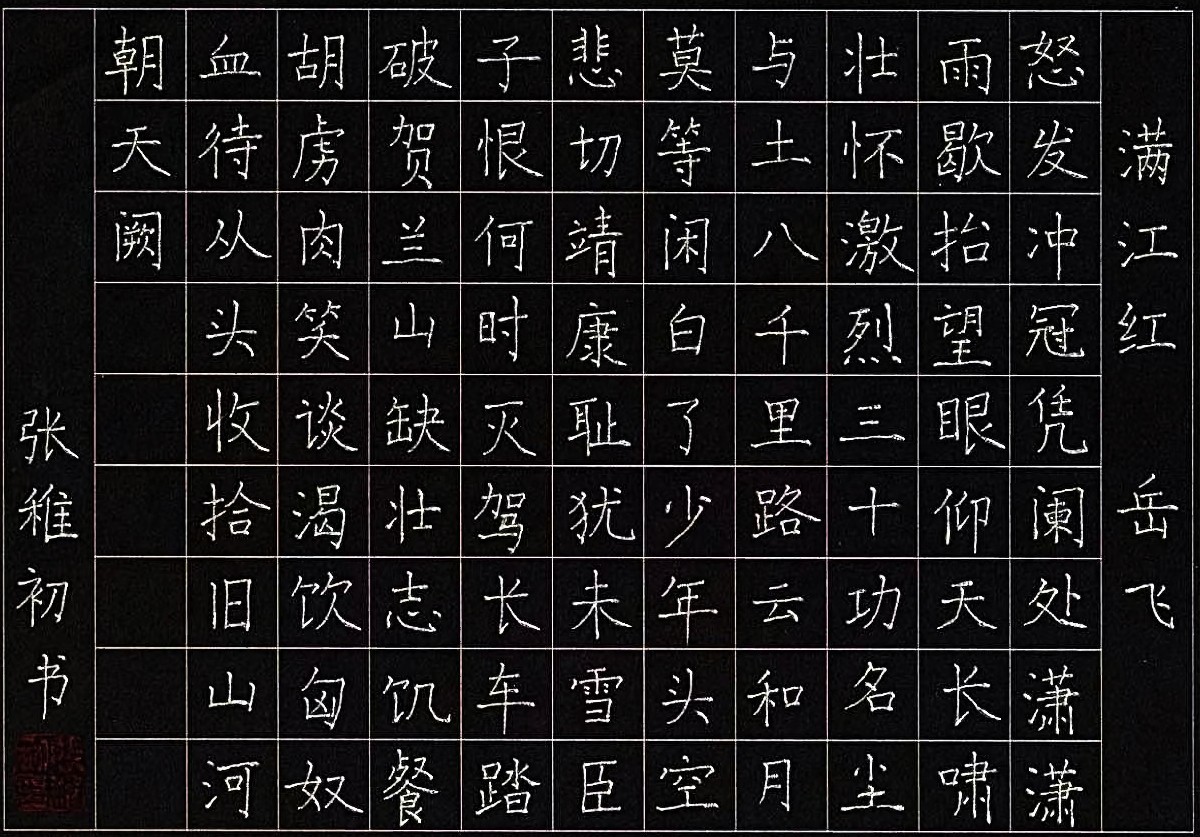 满江红 岳飞
怒发冲冠凭阑处潇潇
雨歇抬望眼仰天长啸
壮怀激烈三十功名尘
与土八千里路云和月
莫等闲白了少年头空
悲切靖康耻犹未雪臣
子恨何时灭驾长车踏
破贺兰山缺壮志饥餐
胡虏肉笑谈渴饮匈奴
血待从头收拾旧山河
朝天阙
张稚初书